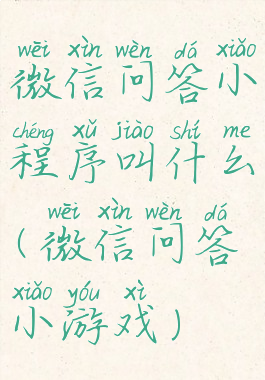 wēi xìn wèn dá xiǎo
微信问答小
chéng xǔ jiào shí me
程序叫什么
wēi xìn wèn dá
(微信问答
xiǎo yóu xì
小游戏)